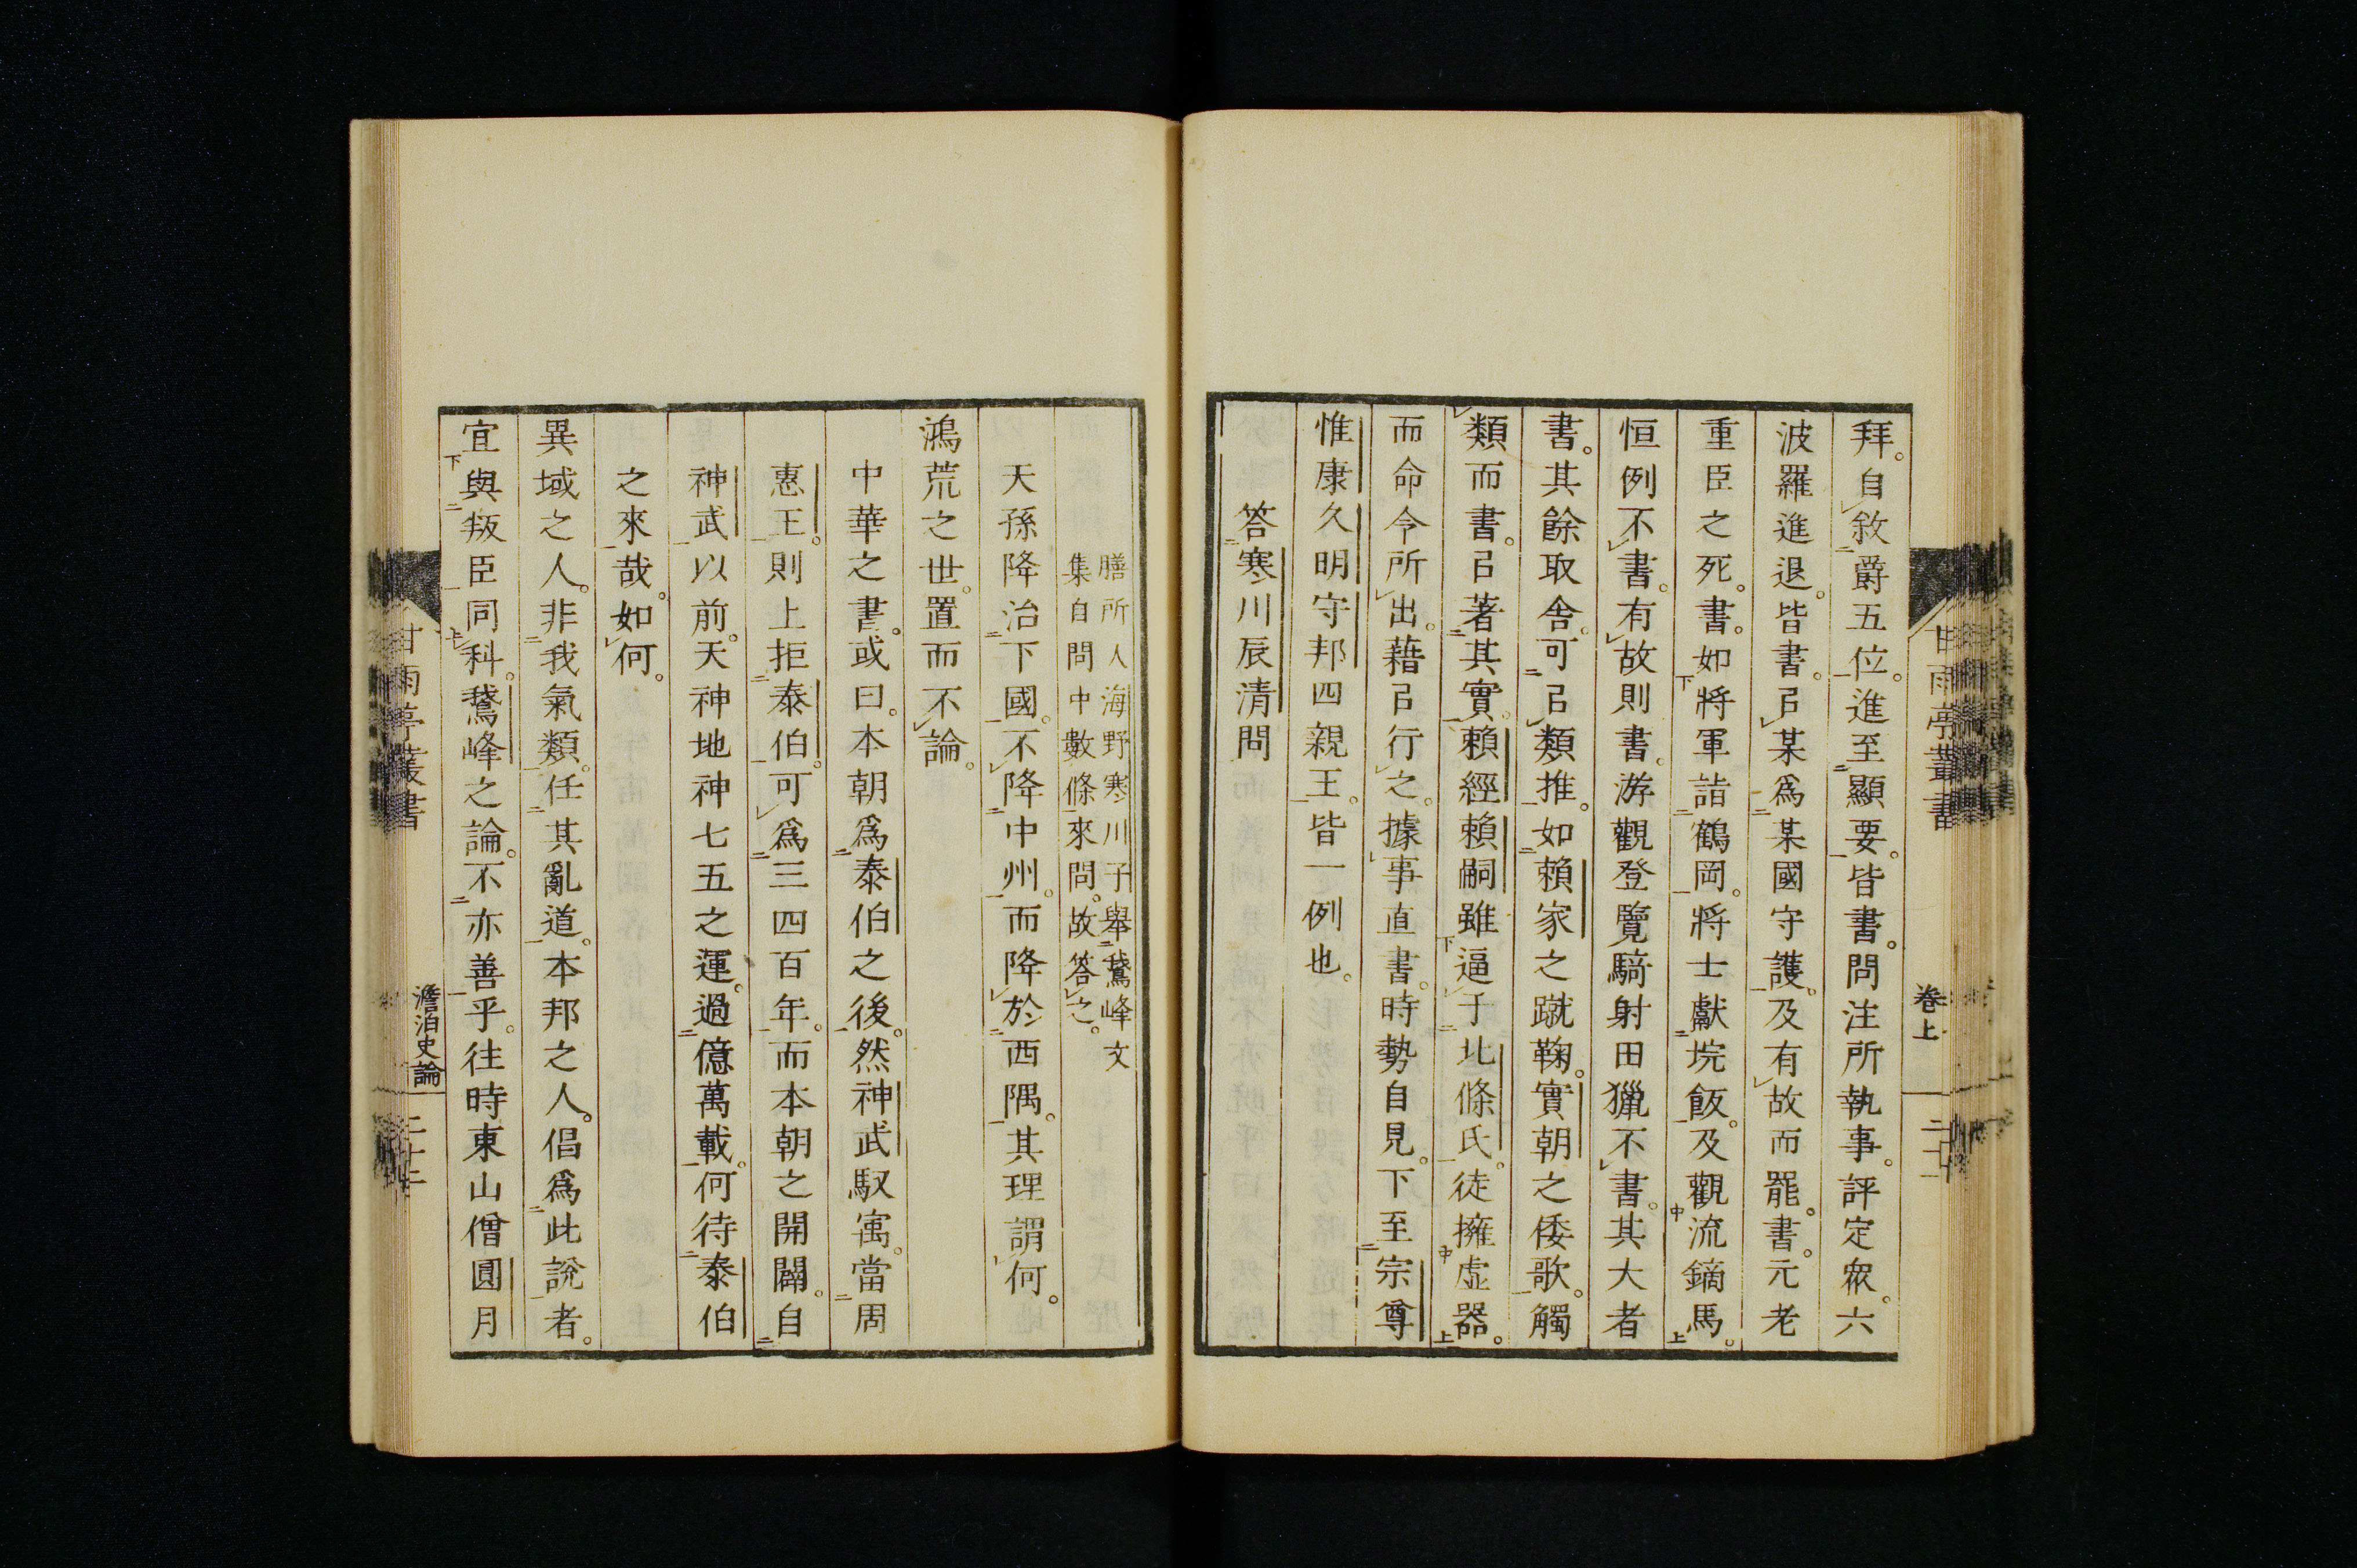 拜。自敘爵五位。進至顯要。皆書。問注所執事。評定衆。六
波羅進退。皆書。㠯某爲某國守護。及有故而罷。書。元老
重臣之死。書。如將軍詣鶴岡。將士獻垸飯。及觀流鏑馬。
恒例不書。有故則書。游觀登覽騎射田獵不書。其大者
書。其餘取舍。可㠯類推。如賴家之蹴鞠。實朝之倭歌。觸
類而書。㠯著其實。賴經賴嗣雖逼于北條氏。徒擁虛器。
而命令所出。藉㠯行之。據事直書。時勢自見。下至宗尊
惟康久明守邦四親王。皆一例也。
答寒川辰清問
膳所人海野寒川子舉鵞峰文
集自問中數條來問。故答之。
天孫降治下國。不降中州。而降於西隅。其理謂何。
鴻荒之世。置而不論。
中華之書。或曰。本朝爲泰伯之後。然神武馭寓。當周
惠王。則上拒泰伯。可爲三四百年。而本朝之開闢。自
神武以前。天神地神七五之運。過億萬載。何待泰伯
之來哉。如何。
異域之人。非我氣類。任其亂道。本邦之人。倡爲此說者。
宜與叛臣同科。鵞峰之論。不亦善乎。往時東山僧圓月
甘雨亭叢書
卷上
甘雨亭叢書
澹泊史論